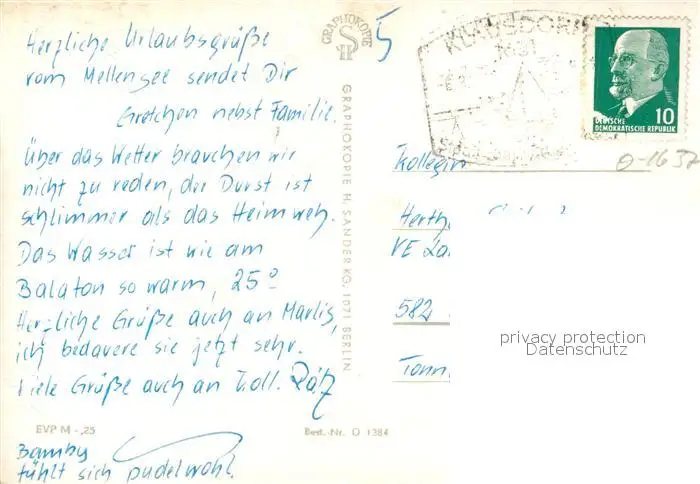 Herzliche Urlaubsgrüße
vom Mellensee sendet Dir
Gretchen nebst Familie.
Über das Wetter brauchen wir
nicht zu reden, der Durst ist
schlimmer als das Heimweh.
Das Wasser ist wie am
Balaton so warm, 25°
Herzliche Grüße auch an Marlis,
ich bedauere sie jetzt sehr.
Viele Grüße auch an Koll.
EVP M -,25
Best.-Nr. O 1384
Bamby
fühlt sich pudelwohl.
GRAPHOKOPIE
GRAPHOKOPIE H. SANDER KG, 1071 BERLIN
5
KLAUSDORF
1631
10
DEUTSCHE
DEMOKRATISCHE REPUBLIK
0-1637
Kollegin
Herth
VE
582
privacy protection
Datenschutz